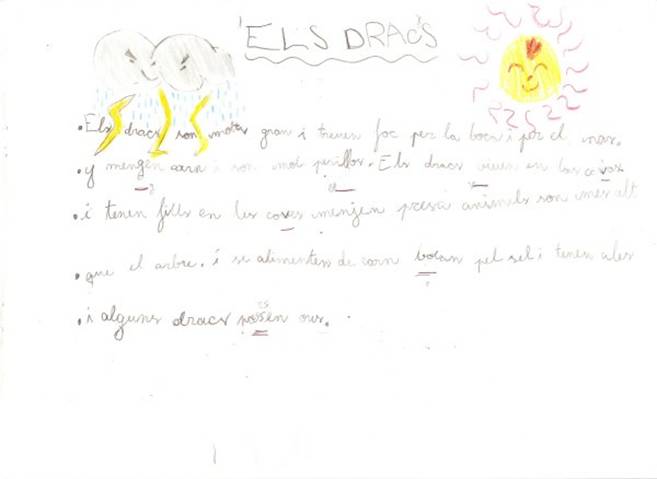 ELS DRACS
• Els dracs son molts gran i treuen foc per la boca i por el nas.
• y mengen carn i son mol perillos. Els dracs viuen en las covas
• i tenen fills en les coves menjen presas animels son mes alt
• que el arbre. i se alimenten de carn bolan pel sel i tenen ales
• i alguns dracs posen ous.